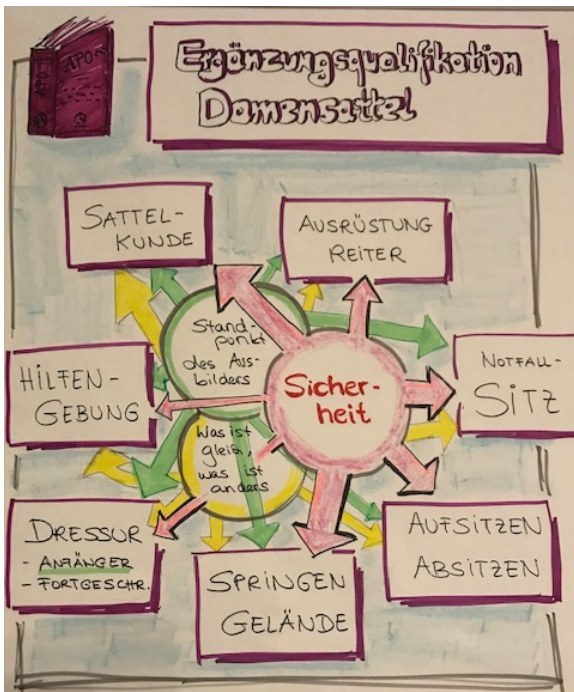 APO
APO
Ergänzungsqualifikation
Damensattel
SATTEL-
KUNDE
AUSRÜSTUNG
REITER
Stand-
punkt
des Aus-
bilders
Sicher-
heit
HILFEN-
GEBUNG
NOTFALL-
SITZ
Was ist
gleich,
was ist
anders
DRESSUR
- ANFÄNGER
- FORTGESCHR.
SPRINGEN
GELÄNDE
AUFSITZEN
ABSITZEN